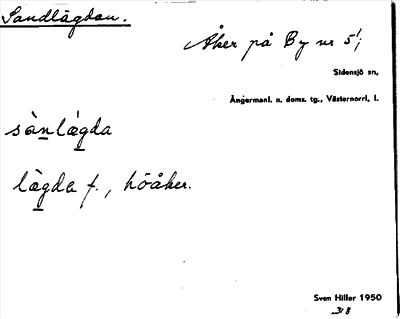 Sandlägdan.
Åker på By nr 5¹;
Sidensjö sn,
Ångermanl. n. doms. tg., Västernorrl. l.
sàn̲lág̲da
làg̲da f., höåker.
Sven Hiller 1950